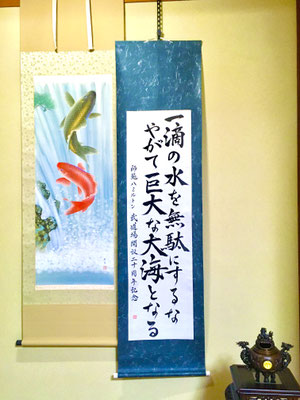 一滴の水を無駄にするな
やがて巨大な大海となる
ハミルトン 武道場開設二十周年記念